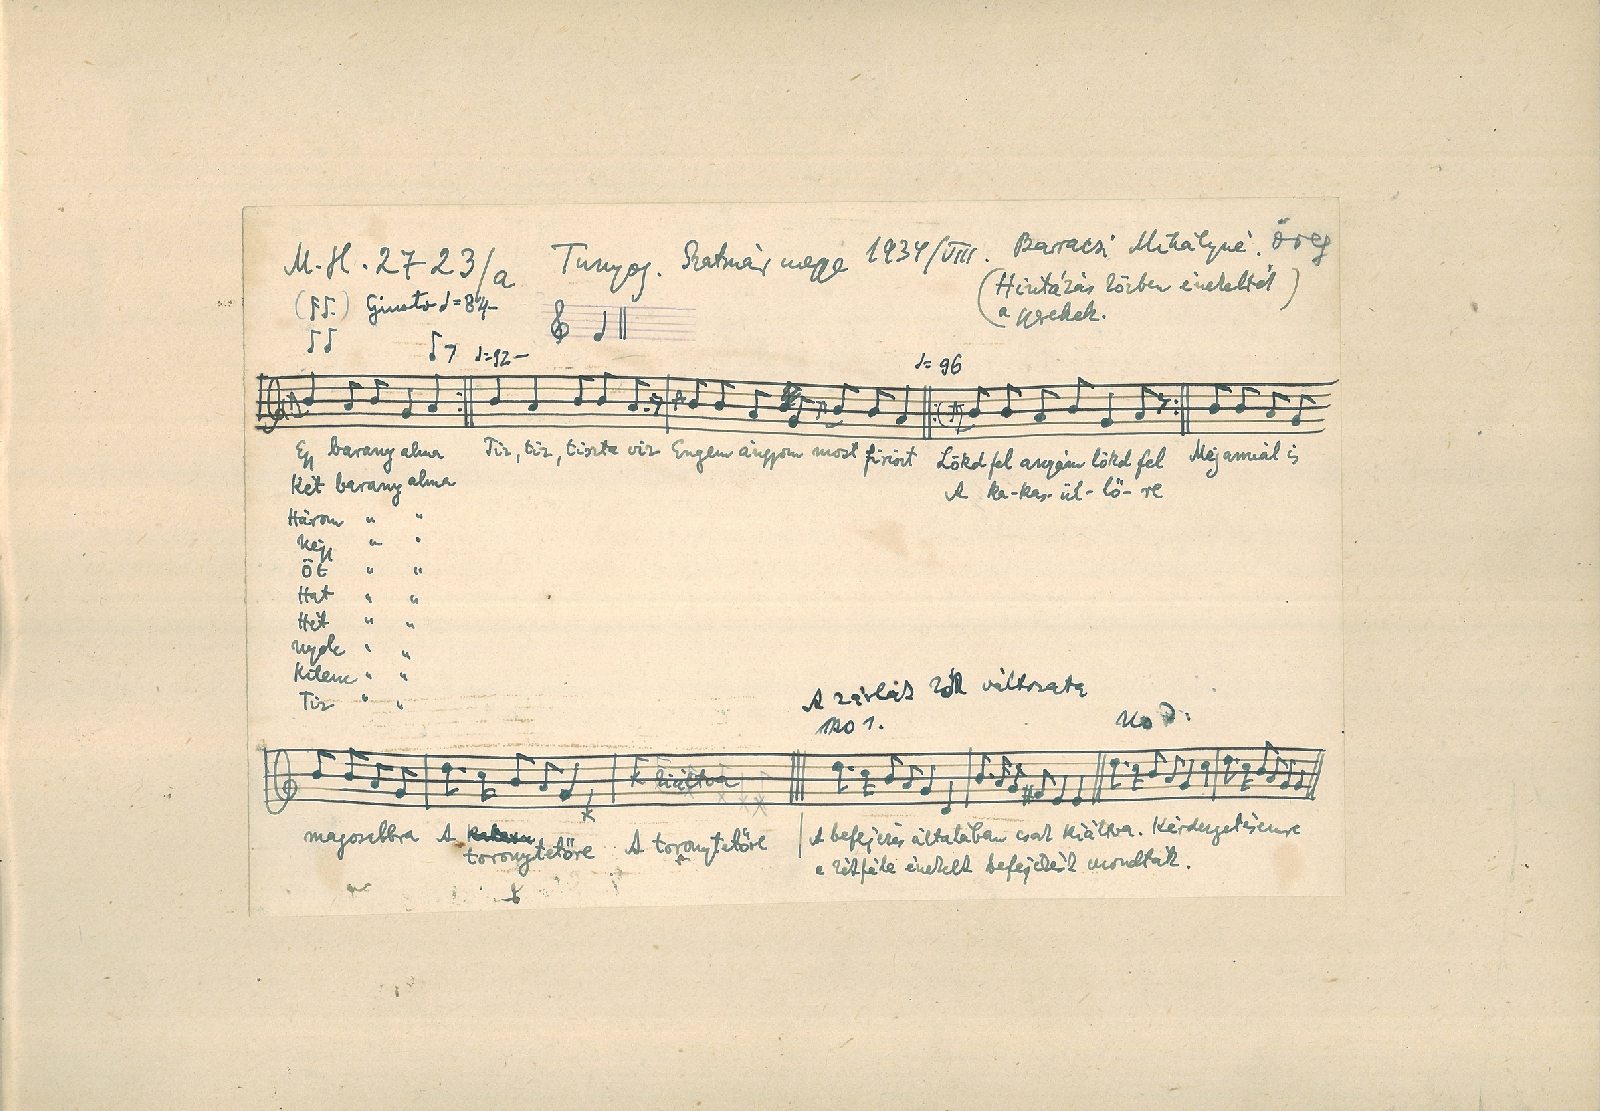 M.H. 2723/a Tunyog. Szatmár megye 1934/VIII. Barracsi Mihályné. öreg
(Hintázás közben énekelték
a gyerekek.)
Giusto ♩=84
♩=92
♩=96
Egy barany alma Tiz, tiz, tiszta viz Engem ángyom most firiszt Lökd fel angyóm lökd fel Méj annál is
Két barany alma A ka-kas-ül-lő-re
Három " "
Néjj " "
Öt " "
Hat " "
Hét " "
Nyolc " "
Kilenc " "
Tiz " "
A zárlat két változata
No 1. No 2.
x kiáltva
magosabbra A toronytetőre A toronytetőre
A befejezés általában csak kiáltva. Kérdezgetésemre
a kétféle énekelt befejezést mondták.